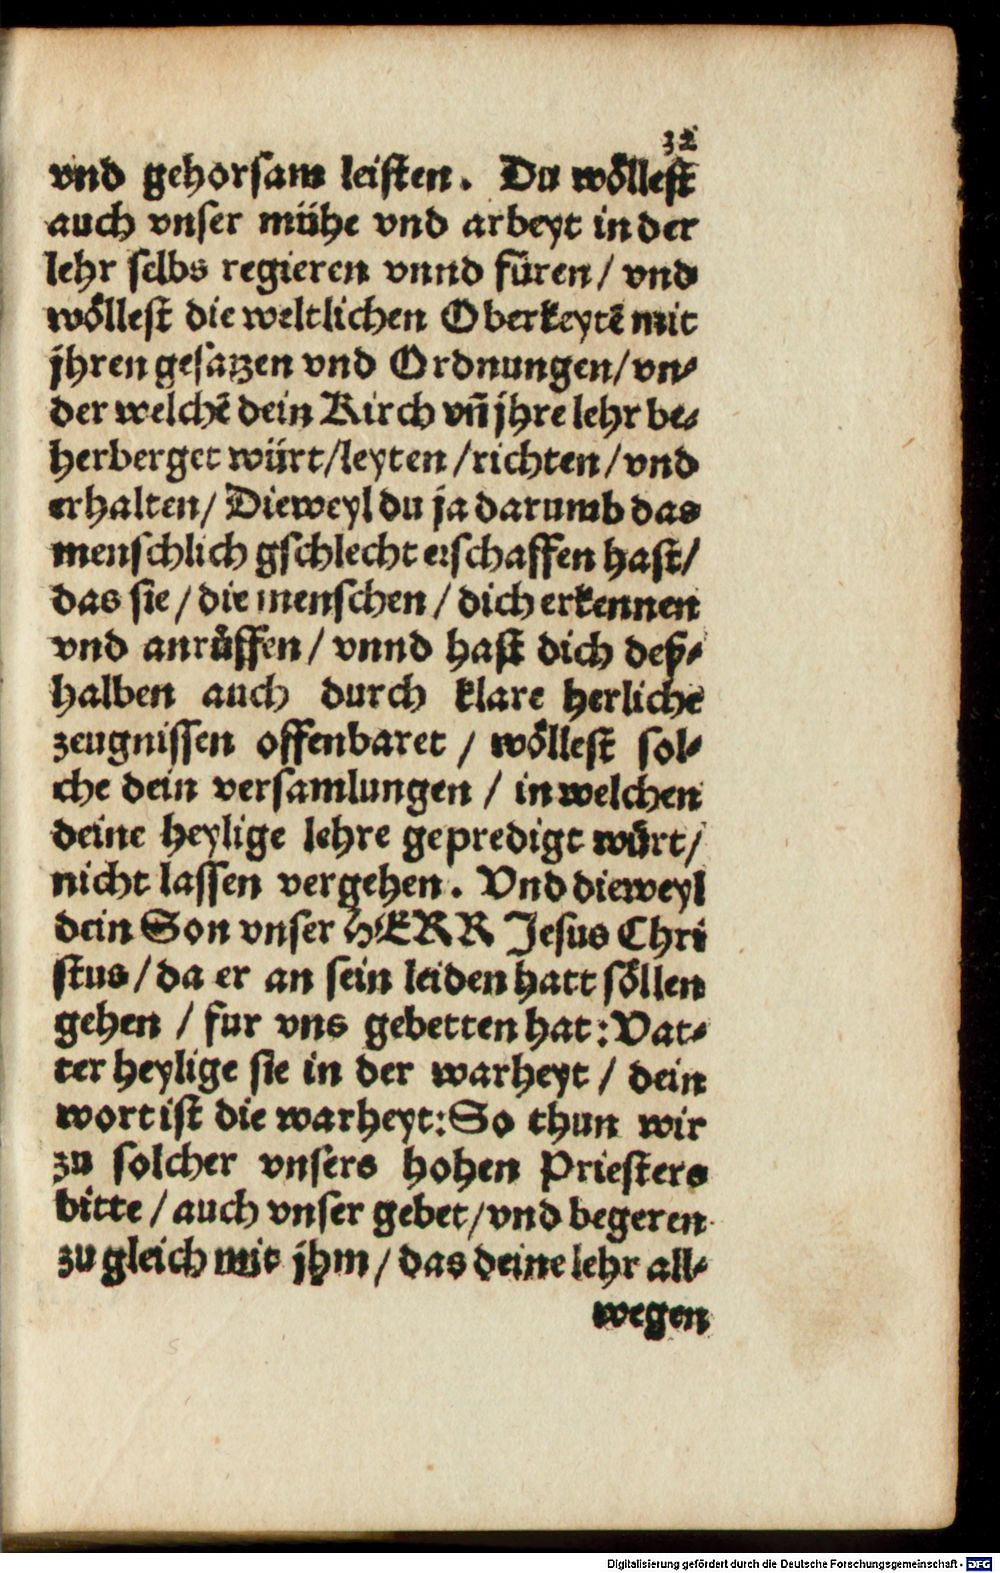 32
vnd gehorsam leisten. Du wöllest
auch vnser mühe vnd arbeyt in der
lehr selbs regieren vnnd füren/ vnd
wöllest die weltlichen Oberkeytē mit
jhren gesatzen vnd Ordnungen/ vn⸗
der welchē dein Kirch vñ jhre lehr be⸗
herberget würt/leyten/richten/vnd
erhalten/ Dieweyl du ja darumb das
menschlich gschlecht erschaffen hast/
das sie/die menschen/dich erkennen
vnd anrůffen/ vnnd hast dich deß⸗
halben auch durch klare herliche
zeugnissen offenbaret/ wöllest sol⸗
che dein versamlungen/ in welchen
deine heylige lehre gepredigt würt/
nicht lassen vergehen. Vnd dieweyl
dein Son vnser HERR Jesus Chri
stus/da er an sein leiden hatt söllen
gehen/ fur vns gebetten hat: Vat⸗
ter heylige sie in der warheyt/ dein
wort ist die warheyt: So thun wir
zu solcher vnsers hohen Priesters
bitte/auch vnser gebet/vnd begeren
zu gleich mit jhm/ das deine lehr all⸗
wegen
Digitalisierung gefördert durch die Deutsche Forschungsgemeinschaft - DFG